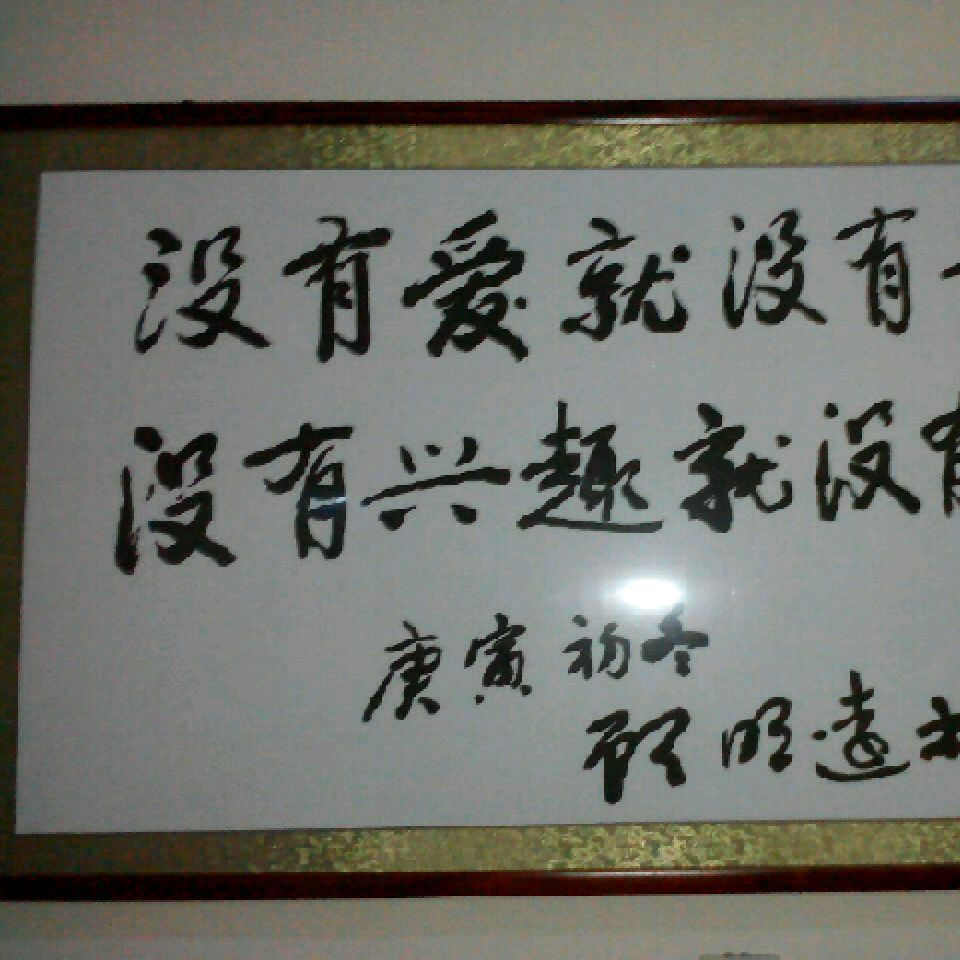 没有爱就没有
没有兴趣就没有
庚寅初冬
顾明远